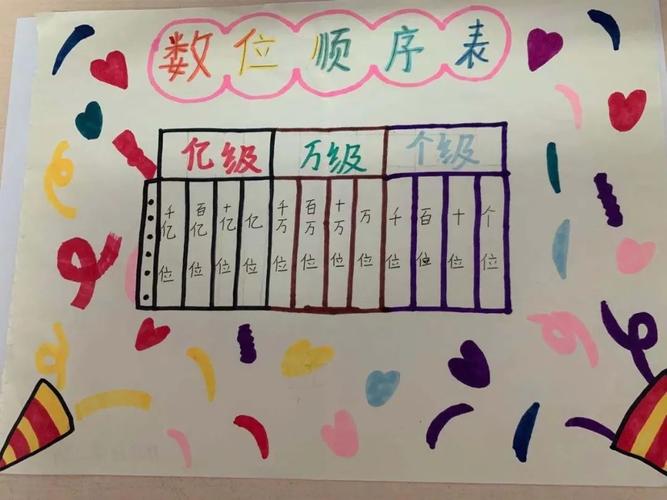 数位顺序表
亿级 万级 个级
千亿位 百亿位 十亿位 亿位 千万位 百万位 十万位 万位 千位 百位 十位 个位